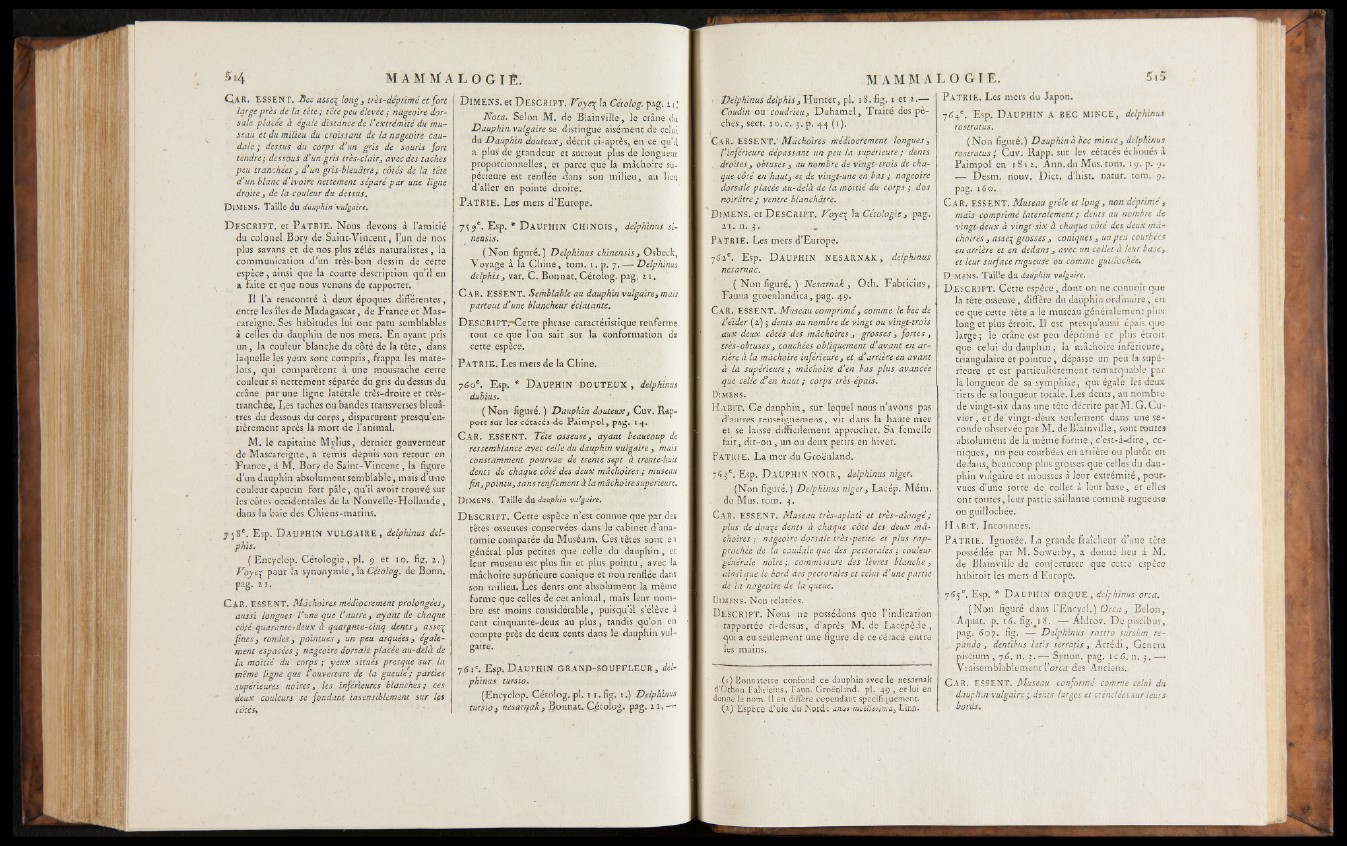 514 MAMMALOGIE.
CAR. ESSENT. Bec assez long, très-déprimé et fort
large près de la tête; tête peu élevée; nageoire dor-
sale placée à égale distance de l'extrémité du mu-
seau et du milieu du croissant de la nageoire cau-
dale; dessus du corps d'un gris de souris fort
tendre; dessous d'un gris très-clair, avec des taches
peu tranchées, d'un gris-bleuâtre; côtés de la tête
d'un blanc d'ivoire nettement séparé par une ligne
droite, de la couleur du dessus.
DIMENS. Taille du dauphin vulgaire.
DESCRIPT. et PATRIE. Nous devons à l'amitié
du colonel Bory de Saint-Vincent, l'un de nos
plus savans et de nos plus zélés naturalistes, la
communication d'un très-bon dessin de cette
espèce, ainsi que la courte description qu'il en
a faite et que nous venons de rapporter.
Il l'a rencontré à deux époques différentes,
entre les îles de Madagascar, de France et Mas-
careigne. Ses habitudes lui ont paru semblables
à celles du dauphin de nos mers. En ayant pris
un, la couleur blanche du côté de la tête, dans
laquelle les yeux sont compris, frappa les mate-
lots, qui comparèrent à une moustache cette
couleur si nettement séparée du gris du dessus du
crâne par une ligne latérale très-droite et très-
tranchée. Les taches ou bandes transverses bleuâ-
tres du dessous du corps, disparurent presqu'en-
tièrement après la mort de l'animal.
M. le capitaine Mylius, dernier gouverneur
de Mascareigne, a remis depuis son retour en
France, à M. Bory de Saint-Vincent, la figure
d'un dauphin absolument semblable, mais d'une
couleur capucin fort pâle, qu'il avoit trouvé sur
les côtes occidentales de la Nouvelle-Hollande,
dans la baie des Chiens-marins.
758e. Esp. DAUPHIN VULGAIRE, delphinus del-
phis.
(Encyclop. Cétologie, pl. 9 et 10. fig. 2.)
Voyez pour la synonymie, la Cétolog. de Bonn.
pag. 21.
CAR. ESSENT. Mâchoires médiocrement prolongées,
aussi longues l'une que l'autre, ayant de chaque
côté quarante-deux à quarante-cinq dents, assez
fines, rondes, pointues, un peu arquées, égale-
ment espacées; nageoire dorsale placée au-delà de
la moitié du corps; yeux situés presque sur la
même ligne que l'ouverture de la gueule; parties
supérieures noires, les inférieures blanches; ces
deux couleurs se fondant insensiblement sur les
côtés.
DIMENS. et DESCRIPT. Voyez la Cétolog. pag. 21.
Nota. Selon M. de Blainville, le crâne du
Dauphin vulgaire se distingue aisément de celui
du Dauphin douteux, décrit ci-après, en ce qu'il
a plus de grandeur et surtout plus de longueur
proportionnelles, et parce que la mâchoire su-
périeure est renflée dans son milieu, au lieu
d'aller en pointe droite.
PATRIE. Les mers d'Europe.
759e. Esp. * DAUPHIN CHINOIS, delphinus si-
nensis.
(Non figuré.) Delphinus chinensis, Osbeck,
Voyage à la Chine, tom. 1. p. 7. — Delphinus
delphis, var. C. Bonnat. Cétolog. pag. 21.
CAR. ESSENT. Semblable au dauphin vulgaire, mais
partout d'une blancheur éclatante.
DESCRIPT. Cette phrase caractéristique renferme
tout ce que l'on sait sur la conformation de
cette espèce.
PATRIE. Les mers de la Chine.
760e. Esp. * DAUPHIN DOUTEUX, delphinus
dubius.
(Non figuré.) Dauphin douteux, Cuv. Rap-
port sur les cétacés de Paimpol, pag. 14.
CAR. ESSENT. Tête osseuse, ayant beaucoup de
ressemblance avec celle du dauphin vulgaire, mais
constamment pourvue de trente-sept à trente-huit
dents de chaque côté des deux mâchoires; museau
fin, pointu, sans renflement à la mâchoire supérieure.
DIMENS. Taille du dauphin vulgaire.
DESCRIPT. Cette espèce n'est connue que par des
têtes osseuses conservées dans le cabinet d'ana-
tomie comparée du Muséum. Ces têtes sont en
général plus petites que celle du dauphin, et
leur museau est plus fin et plus pointu, avec la
mâchoire supérieure conique et non renflée dans
son milieu. Les dents ont absolument la même
forme que celles de cet animal, mais leur nom-
bre est moins considérable, puisqu'il s'élève à
cent cinquante-deux au plus, tandis qu'on en
compte près de deux cents dans le dauphin vul-
gaire.
761e. Esp. DAUPHIN GRAND-SOUFFLEUR, del-
phinus tursio.
(Encyclop. Cétolog. pl. 11. fig. 1.) Delphinus
tursio, nesarnak, Bonnat. Cétolog. pag. 21. —
MAMMALOGIE. 515
Delphinus delphis, Hunter, pl. 18. fig. 1 et 2. —
Coudin ou coudrieu, Duhamel, Traité des pê-
ches, sect. 10. c. 3. p. 44 (1).
CAR. ESSENT. Mâchoires médiocrement longues,
l'inférieure dépassant un peu la supérieure; dents
droites, obtuses, au nombre de vingt-trois de cha-
que côté en haut, et de vingt-une en bas; nageoire
dorsale placée au-delà de la moitié du corps; dos
noirâtre; ventre blanchâtre.
DIMENS. et DESCRIPT. Voyez la Cétologie, pag.
21. n. 3.
PATRIE. Les mers d'Europe.
762e. Esp. DAUPHIN NESARNAK, delphinus
nesarnac.
(Non figuré.) Nesarnak, Oth. Fabricius,
Fauna groenlandica, pag. 49.
CAR. ESSENT. Museau comprimé, comme le bec de
l'eider (2); dents au nombre de vingt ou vingt-trois
aux deux côtés des mâchoires, grosses, fortes,
très-obtuses, couchées obliquement d'avant en ar-
rière à la mâchoire inférieure, et d'arrière en avant
à la supérieure; mâchoire d'en bas plus avancée
que celle d'en haut; corps très-épais.
DIMENS.
HABIT. Ce dauphin, sur lequel nous n'avons pas
d'autres renseignemens, vit dans la haute mer
et se laisse difficilement approcher. Sa femelle
fait, dit-on, un ou deux petits en hiver.
PATRIE. La mer du Groënland.
763e. Esp. DAUPHIN NOIR, delphinus niger.
(Non figuré.) Delphinus niger, Lacép. Mém.
du Mus. tom. 3.
CAR. ESSENT. Museau très-aplati et très-alongé;
plus de douze dents à chaque côté des deux mâ-
choires; nageoire dorsale très-petite et plus rap-
prochée de la caudale que des pectorales; couleur
générale noire; commissure des lèvres blanche,
ainsi que le bord des pectorales et celui d'une partie
de la nageoire de la queue.
DIMENS. Non relatées.
DESCRIPT. Nous ne possédons que l'indication
rapportée ci-dessus, d'après M. de Lacépède,
qui a eu seulement une figure de ce cétacé entre
les mains.
(1) Bonnaterre confond ce dauphin avec le nesarnak
d'Othon Fabricius, Faun. Groënland. pl. 49, et lui en
donne le nom. Il en diffère cependant spécifiquement.
(2) Espèce d'oie du Nord: anas mollissima, Linn.
PATRIE. Les mers du Japon.
764e. Esp. DAUPHIN A BEC MINCE, delphinus
rostratus.
(Non figuré.) Dauphin à bec mince, delphinus
rostratus; Cuv. Rapp. sur les cétacés échoués à
Paimpol en 1812. Ann. du Mus. tom. 19. p. 9.
— Desm. nouv. Dict. d'hist. natur. tom. 9.
pag. 160.
CAR. ESSENT. Museau grêle et long, non déprimé,
mais comprimé latéralement; dents au nombre de
vingt-deux à vingt-six à chaque côté des deux mâ-
choires, assez grosses, coniques, un peu courbées
en arrière et en dedans, avec un collet à leur base,
et leur surface rugueuse ou comme guillochée.
DIMENS. Taille du dauphin vulgaire.
DESCRIPT. Cette espèce, dont on ne connoît que
la tête osseuse, diffère du dauphin ordinaire, en
ce que cette tête a le museau généralement plus
long et plus étroit. Il est presqu'aussi épais que
large; le crâne est peu déprimé et plus étroit
que celui du dauphin; la mâchoire inférieure,
triangulaire et pointue, dépasse un peu la supé-
rieure et est particulièrement remarquable par
la longueur de sa symphise, qui égale les deux
tiers de sa longueur totale. Les dents, au nombre
de vingt-six dans une tête décrite par M. G. Cu-
vier, et de vingt-deux seulement dans une se-
conde observée par M. de Blainville, sont toutes
absolument de la même forme, c'est-à-dire, co-
niques, un peu courbées en arrière ou plutôt en
dedans, beaucoup plus grosses que celles du dau-
phin vulgaire et mousses à leur extrémité, pour-
vues d'une sorte de collet à leur base, et elles
ont toutes, leur partie saillante comme rugueuse
ou guillochée.
HABIT. Inconnues.
PATRIE. Ignorée. La grande fraîcheur d'une tête
possédée par M. Sowerby, a donné lieu à M.
de Blainville de conjecturer que cette espèce
habitoit les mers d'Europe.
765e. Esp. * DAUPHIN ORQUE, delphinus orca.
(Non figuré dans l'Encycl.) Orca, Belon,
Aquat. p. 16. fig. 18. — Aldrov. De piscibus,
pag. 697. fig. — Delphinus rostro sursùm re-
pando, dentibus latis serratis, Artédi, Genera
piscium, 76. n. 3. — Synon. pag. 106. n. 3. —
Vraisemblablement l'orca des Anciens.
CAR. ESSENT. Museau conformé comme celui du
dauphin vulgaire; dents larges et crénelées sur leurs
bords.